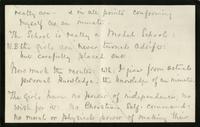 really are - & in all points conforming
myself as an inmate.
The School is really a Model School:
N.B the girls are never turned adrift:
but carefully placed out.
Now mark the results: wh. I give from actual
personal knowledge: the knowledge of an inmate
The girls have no power of independence, no
wish for it: no Christian self-command:
no moral or physical power of making their